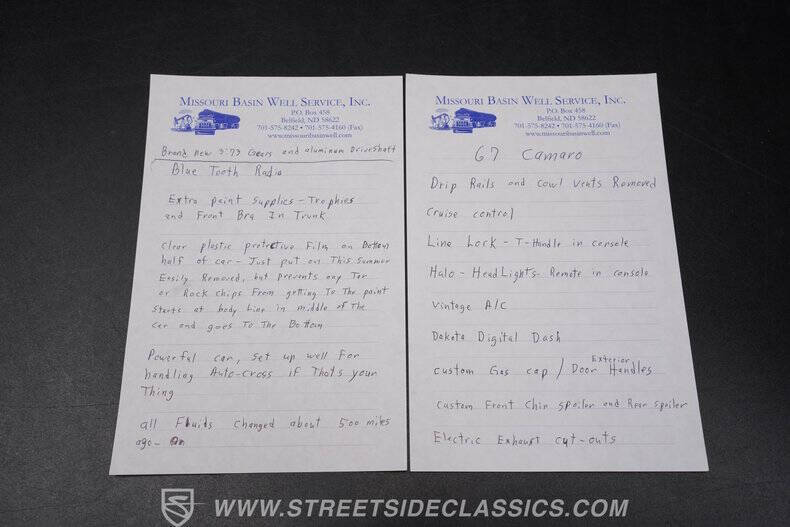 MISSOURI BASIN WELL SERVICE, INC.
P.O. Box 458
Belfield, ND 58622
701-575-8242 • 701-575-4160 (Fax)
www.missouribasinwell.com
Brand New 3:73 Gears and aluminum DriveShaft
Blue Tooth Radio
Extra paint supplies - Trophies
and Front Bra In Trunk
Clear plastic protective Film on Bottom
half of car - Just put on This Summer
Easily Removed, but prevents any Tar
or Rock chips From getting To The paint
Starts at body Line in middle of The
car and goes To The Bottom
Powerful car, set up well For
handling Auto-cross if That's your
Thing
all Fluids changed about 500 miles
ago -
MISSOURI BASIN WELL SERVICE, INC.
P.O. Box 458
Belfield, ND 58622
701-575-8242 • 701-575-4160 (Fax)
www.missouribasinwell.com
67 Camaro
Drip Rails and Cowl Vents Removed
Cruise control
Line Lock - T-Handle in console
Halo - HeadLights - Remote in console
Vintage A/C
Dakota Digital Dash
Custom Gas cap / Exterior Door Handles
Custom Front Chin spoiler and Rear spoiler
Electric Exhaust cut-outs
WWW.STREETSIDECLASSICS.COM